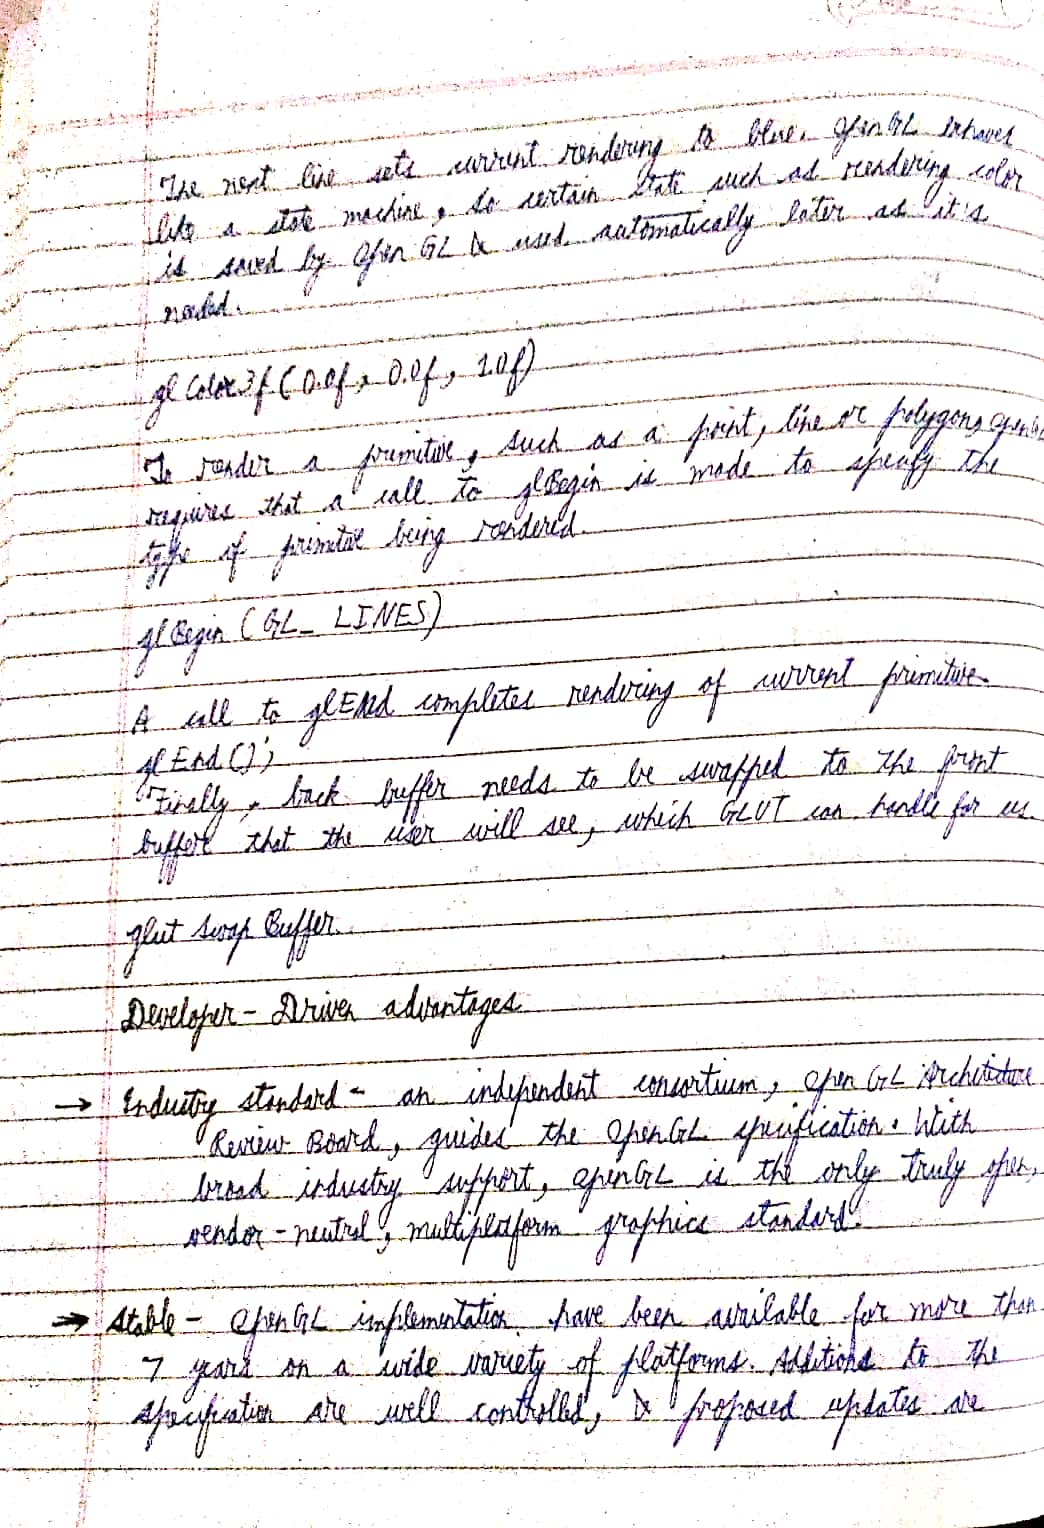 The next line sets current rendering to blue. OpenGL behaves
like a state machine, so certain state such as rendering color
is saved by Open GL & used automatically later as it's
needed.
gl Color 3f ( 0.0f, 0.0f, 1.0f)
To render a primitive, such as a point, line or polygon, OpenGL
requires that a call to glBegin is made to specify the
type of primitive being rendered.
gl Begin (GL_ LINES)
A call to glEnd completes rendering of current primitive.
gl End ();
Finally, back buffer needs to be swapped to the front
buffer that the user will see, which GLUT can handle for us.
glut swap Buffer.
Developer - Driven advantages
→ Industry standard - an independent consortium, Open GL Architecture
Review Board, guides the OpenGL specification. With
broad industry support, OpenGL is the only truly open,
vendor - neutral, multiplatform graphics standard.
→ Stable - OpenGL implementation have been available for more than
7 years on a wide variety of platforms. Additions to the
specification are well controlled, & proposed updates are